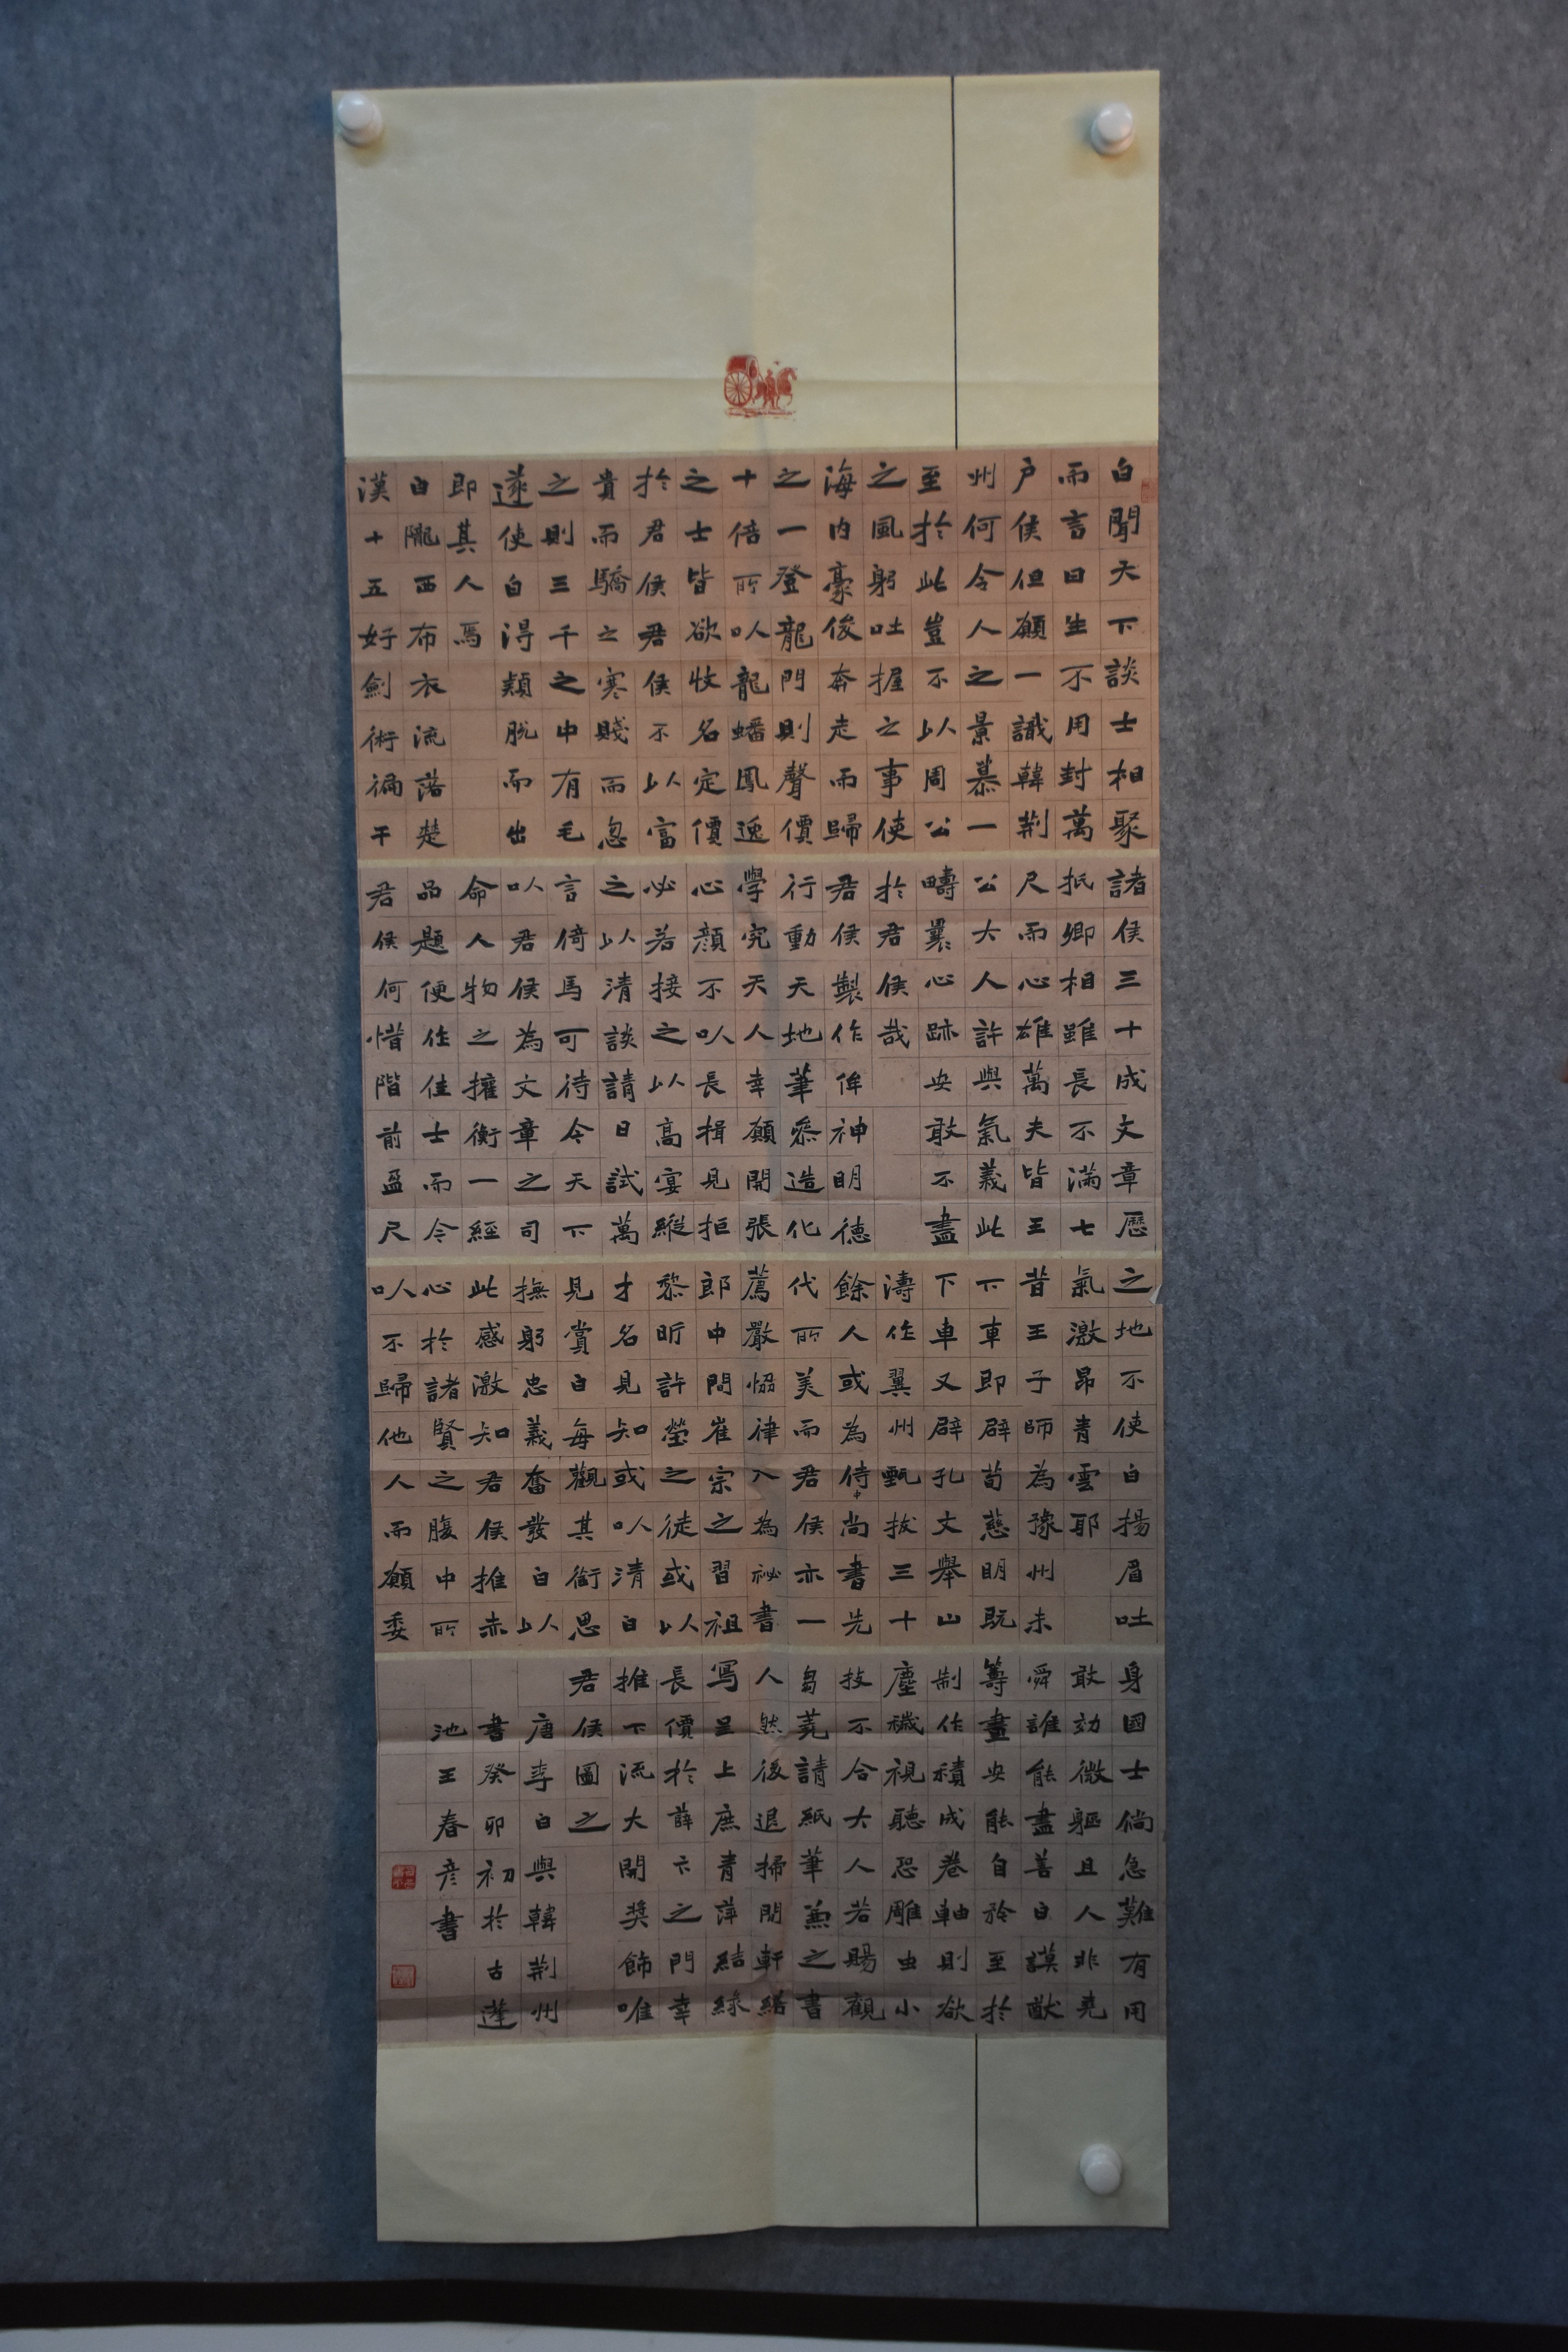 白聞天下談士相聚
而言曰生不用封萬
户侯但願一識韓荆
州何令人之景慕一
至於此豈不以周公
之風躬吐握之事使
海内豪俊奔走而歸
之一登龍門則聲價
十倍所以龍蟠鳳逸
之士皆欲收名定價
於君侯君侯不以富
貴而驕之寒賤而忽
之則三千之中有毛
遂使白得穎脱而出
即其人焉
白隴西布衣流落楚
漢十五好劍術徧干
諸侯三十成文章歷
抵卿相雖長不滿七
尺而心雄萬夫皆王
公大人許與氣義此
疇曩心跡安敢不盡
於君侯哉
君侯製作侔神明德
行動天地筆參造化
學究天人幸願開張
心顏不以長揖見拒
必若接之以高宴縱
之以清談請日試萬
言倚馬可待今天下
以君侯為文章之司
命人物之權衡一經
品題便作佳士而今
君侯何惜階前盈尺
之地不使白揚眉吐
氣激昂青雲耶
昔王子師為豫州未
下車即辟荀慈明既
下車又辟孔文舉山
濤作冀州甄拔三十
餘人或為侍中尚書先
代所美而君侯亦一
薦嚴協律入為祕書
郎中間崔宗之習祖
黎昕許瑩之徒或以
才名見知或以清白
見賞白每觀其銜思
撫躬忠義奮發白以
此感激知君侯推赤
心於諸賢之腹中所
以不歸他人而願委
身國士倘急難有用
敢効微軀且人非堯
舜誰能盡善白謨猷
籌畫安能自矜至於
制作積成卷軸則欲
塵穢視聽恐雕虫小
技不合大人若賜觀
芻蕘請紙筆兼之書
人然後退掃閒軒繕
寫呈上庶青萍結綠
長價於薛卞之門幸
推下流大開奬飾唯
君侯圖之
唐李白與韓荆州
書癸卯初於古蓬
池王春彦書